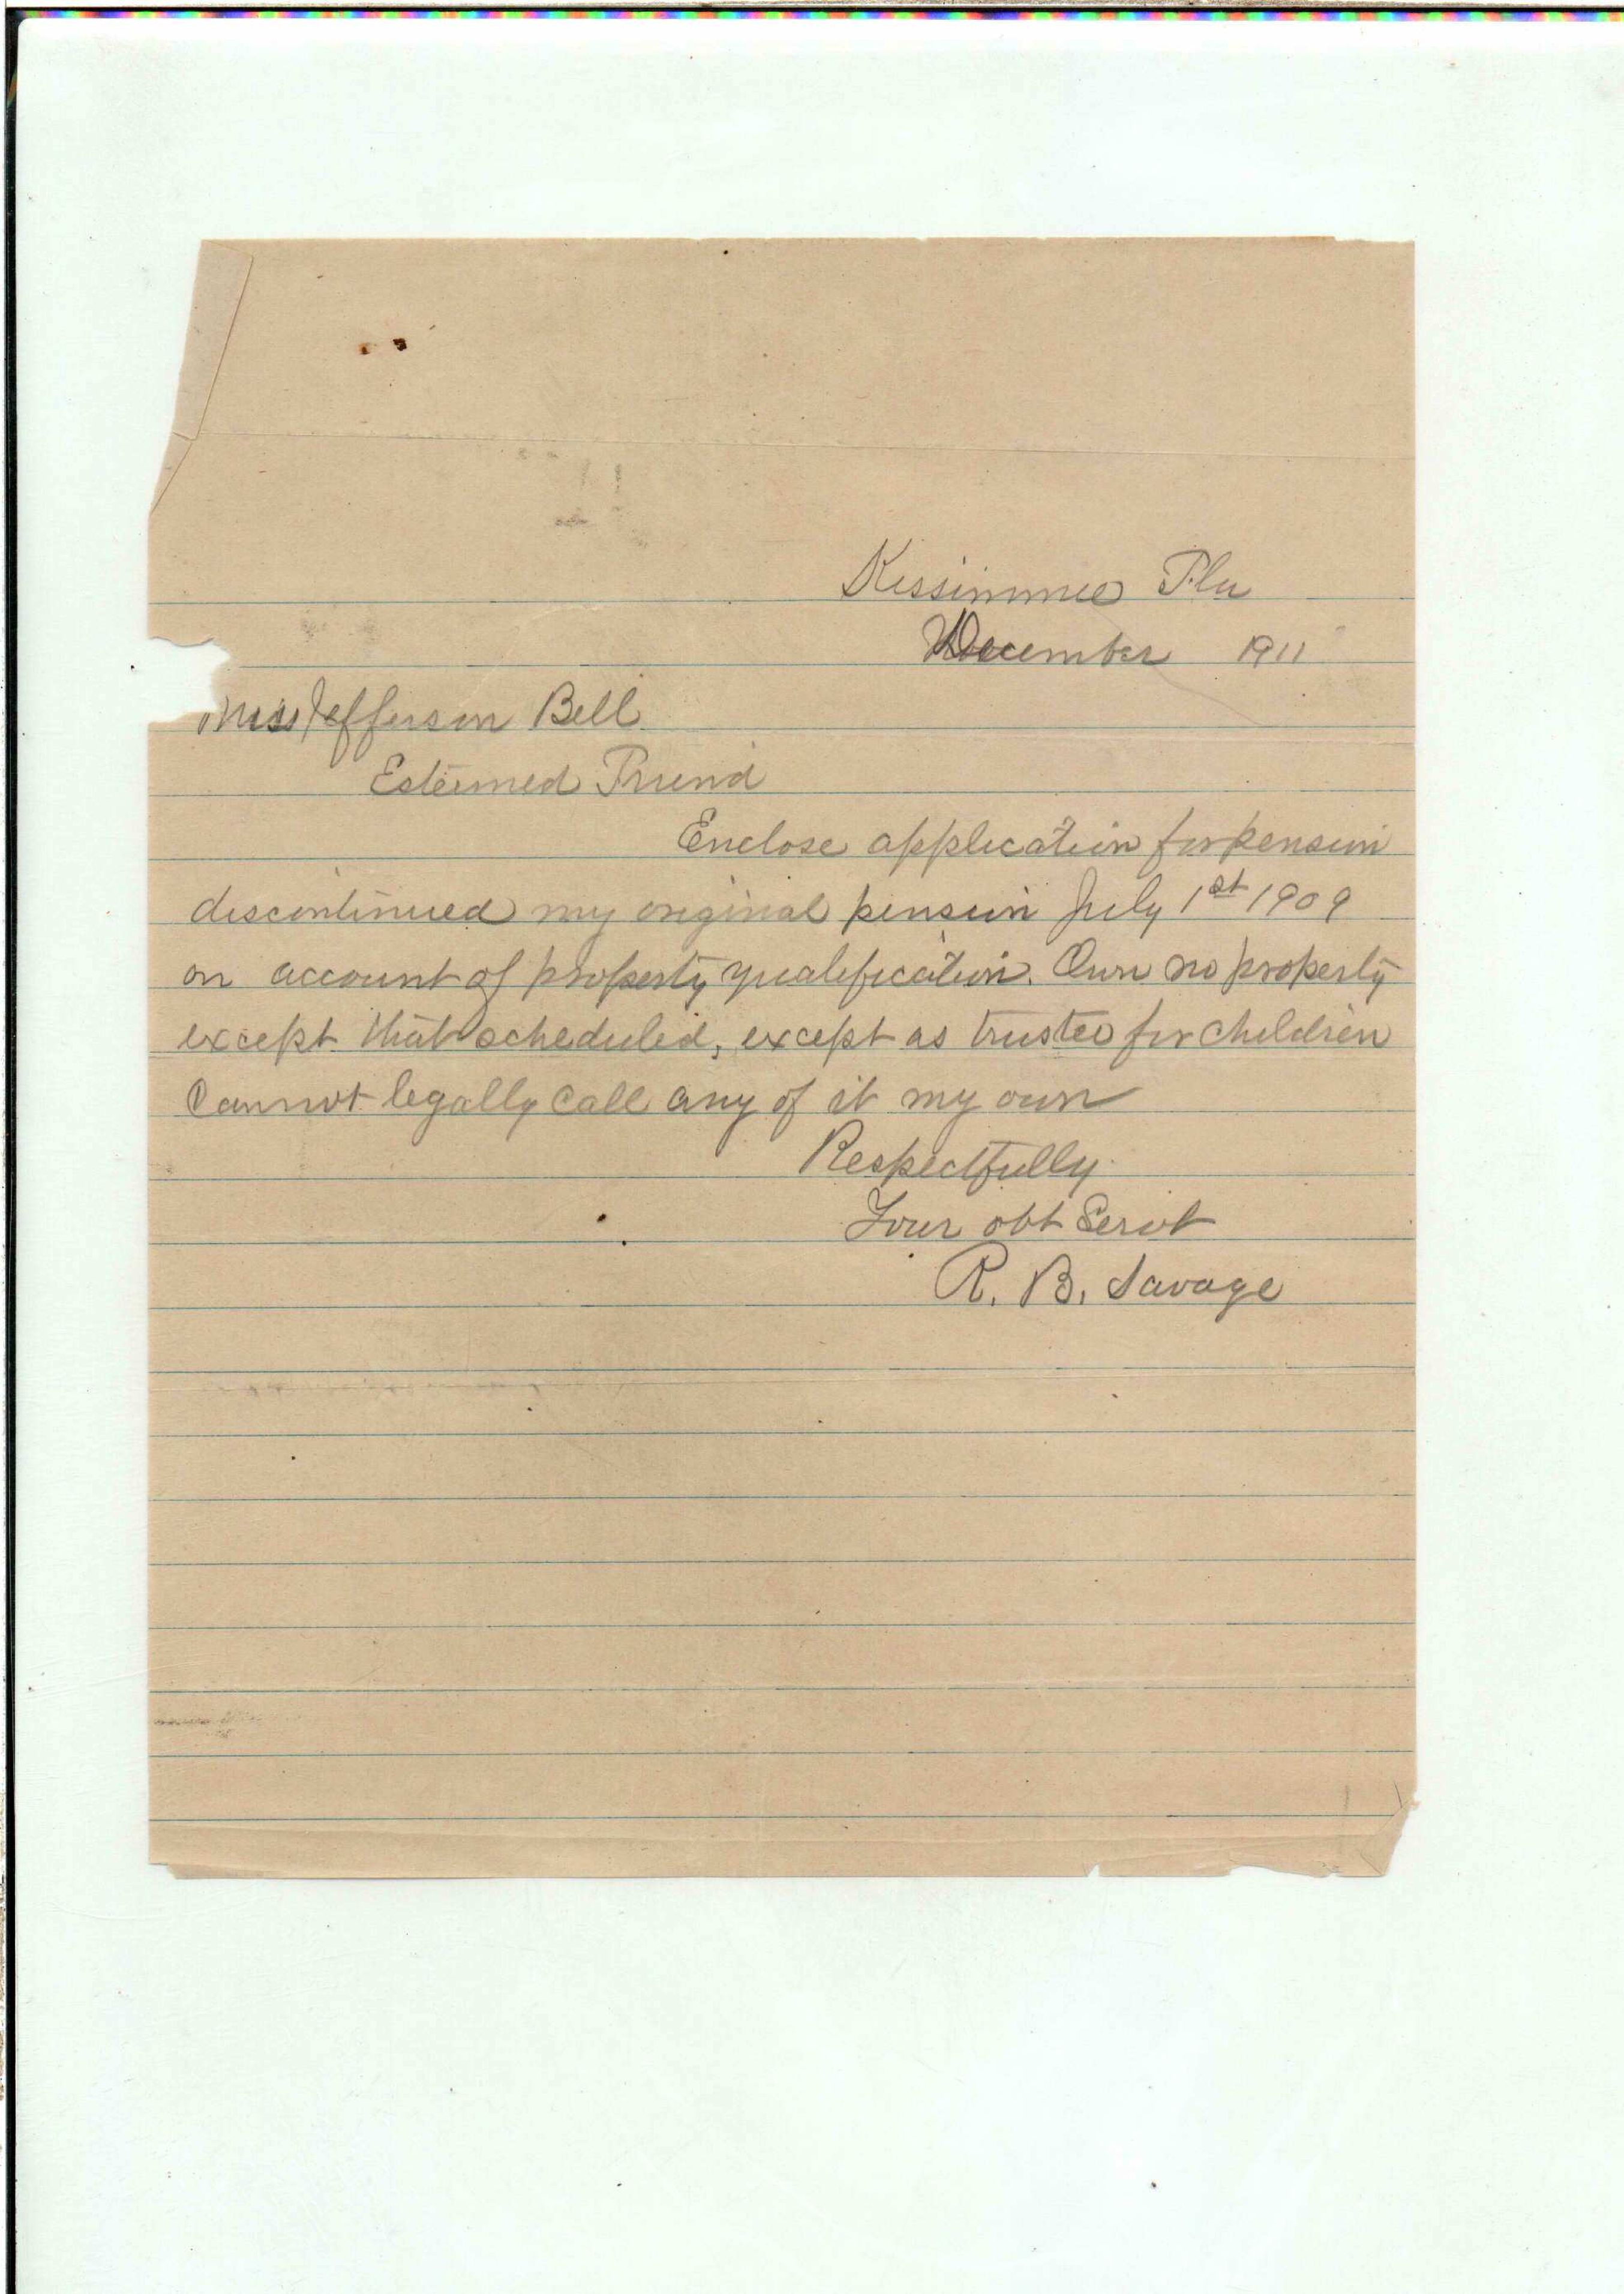 Kissimmee Fla
December 1911
Miss Jefferson Bell
Esteemed Friend
Enclose application for pension
discontinued my original pension July 1st 1909
on account of property qualification. Own no property
except that scheduled, except as trustee for children
Cannot legally call any of it my own
Respectfully
Your obt Servt
R. B. Savage